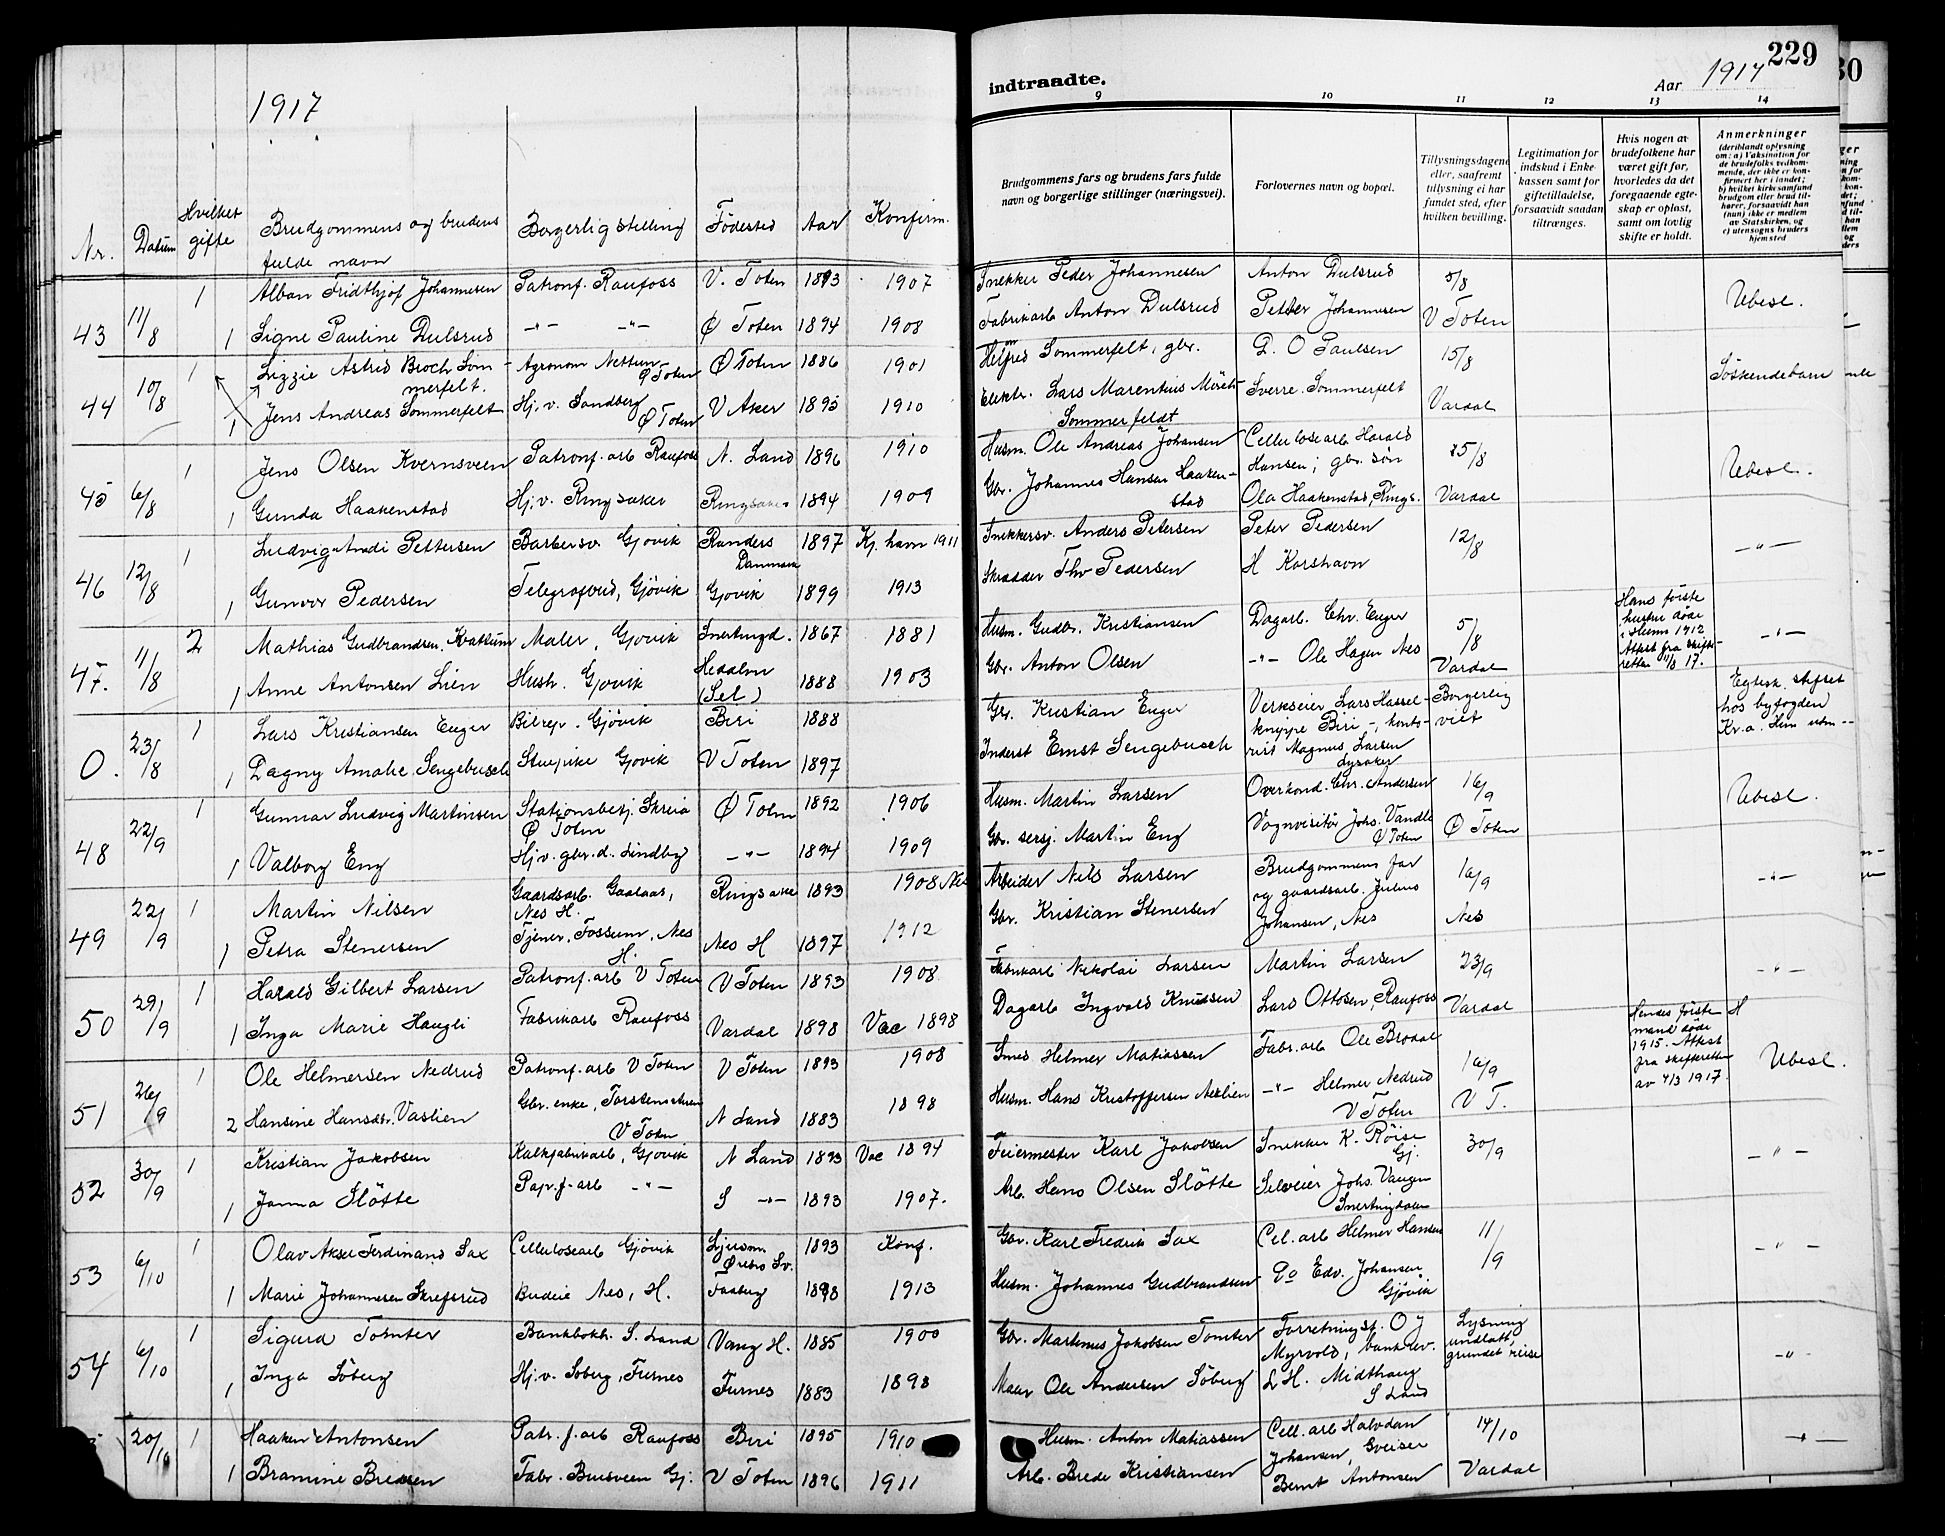 1917
Nr.
Datum
Hvilket
gifte
Brudgommens og brudens
fulde navn
Borgerlig stilling
Födested
Aar
Konfirm.
43
11/8
1
Alban Fridthjof Johannesen
Patronf. Raufoss
V. Toten
1893
1907
1
Signe Pauline Dulsrud
-"- -"-
Ø Toten
1894
1908
44
10/8
1
Lizzie Astrid Broch Som-
merfelt.
Agronom Nettum
Ø Toten
Ø Toten
1886
1901
1
Jens Andreas Sommerfelt
Hj. v. Sandberg
Ø Toten
V Aker
1895
1910
45
6/8
1
Jens Olsen Kvernsveen
Patronf. arb Raufoss
N. Land
1896
1910
1
Gunda Haakenstad
Hj. v. Ringsaker
Ringsaker
1894
1909
46
12/8
1
Ludvig Andi Pettersen
Barbersv. Gjøvik
Randers
Danmark
1897
Kj. havn 1911
1
Gunvor Pedersen
Telegrafbud, Gjövik
Gjovik
1899
1913
47.
11/8
2
Mathias Gudbrandsen Kvattum
Maler, Gjovik
Snertingd.
1867
1881
1
Anne Antonsen Lien
Hush. Gjovik
Heddalen
(Sel)
1888
1903
0.
23/8
1
Lars Kristiansen Enger
Bilrep. Gjövik
Biri
1888
1
Dagny Amalie Sengebusch
Stuepike Gjovik
V Toten
1897
48
22/9
1
Gunnar Ludvig Martinsen
Stationsbetj. Skreia
Ø Toten
Ø Toten
1892
1906
1
Valborg Eng
Hj. v. gbr. d. Lindby
-"-
1894
1909
49
22/9
1
Martin Nilsen
Gaardsarb. Gaalaas,
Nes H.
Ringsaker
1893
1908 Nes
1
Petra Stenersen
Tjener, Fossum, Nes
H.
Nes H
1897
1912
50
29/9
1
Harald Gilbert Larsen
Patronf. arb V Toten
V Toten
1893
1908
1
Inga Marie Haugli
Fabrikarb Raufoss
Vardal
1898
Vac 1898
51
26/9
1
Ole Helmersen Nedrud
Patronf. arb V Toten
V Toten
1893
1908
2
Hansine Hansdtr. Vastien
Gbr. enke,
V Toten
N Land
1883
1898
52
30/9
1
Kristian Jakobsen
Kalkfabrikarb, Gjovik
N Land
1893
Vac 1894
1
Janna Slötte
Pap. f. arb -"-
S -"-
1893
1907.
53
6/10
1
Olav Aksel Ferdinand Sax
Cellulosearb Gjøvik
Örebro Sv.
1893
Konf.
1
Marie Johannesen Skrefsrud
Budeie Nes, H.
Faaberg
1898
1913
54
6/10
1
Sigurd Tomter
Bankbokh. S. Land
Vang H.
1885
1900
1
Inga Söberg
Hj. v. Soberg, Furnes
Furnes
1883
1898
20/10
1
Haaken Antonsen
Patr. f. arb Raufoss
Biri
1895
1910
1
Bramine Bredesen
Fabr. Brusveen Gj.
V Toten
1896
1911
indtraadte.
Aar 1917
229
30
9
10
11
12
13
14
Brudgommens fars og brudens fars fulde
navn og borgerlige stillinger (næringsvei).
Forlovernes navn og bopæl.
Tillysningsdagene
eller, saafremt
tillysning ei har
fundet sted, efter
hvilken bevilling.
Legitimation for
indskud i Enke-
kassen samt for
giftetilladelse,
forsaavidt saadan
tiltrænges.
Hvis nogen av
brudefolkene har
været gift før,
hvorledes da det
foregaaende egte-
skap er opløst,
samt om lovlig
skifte er holdt.
Anmerkninger
(deriblandt oplysning
om: a) Vaksination for
de brudefolks vedkom-
mende, der ikke er kon-
firmert her i landet;
b) hvilket kirkesamfund
brudgom eller brud til-
hører, forsaavidt han
(hun) ikke er medlem
av Statskirken, og
c) utensogns bruders
hjemsted
Snekker Peder Johannesen
Anton Dulsrud
5/8
Fabrikarb Anton Dulsrud
Petter Johannesen
V Toten
Ubesl.
Helfred Sommerfelt, gbr.
P. O Paulsen
15/8
Elektr. Lars Marentius Mörch
Sommerfeldt
Sverre Sommerfelt
Vardal
Söskendebarn
Husm. Ole Andreas Johansen
Cellulosearb Harald
Hansen; gbr. sön
25/8
Gbr. Johannes Hansen Haaken-
stad
Ola Haakenstad, Rings.
Vardal
Ubesl.
Snekkersv. Anders Petersen
Peter Pedersen
12/8
Skrædder Thv Pedersen
H Korshavn
-"-
Husm. Gudbr. Kristiansen
Dagarb. Chr. Enger
5/8
Gbr. Anton Olsen
-"- Ole Hagen Nes
Vardal
Hans første
hustru döde
1912
Attest fra skifte-
retten 11/8 17.
-"-
Gbr. Kristian Enger
Verkseier Lars Hassel-
knippe Biri -, konto-
rist Magnus Larsen
Lysaker
Borgerlig
viet
Inderst Ernst Sengebusch
Egtesk. stiftet
hos byfogden
Husm. Martin Larsen
Overkond. Chr. Andersen
16/9
Gbr. sersj. Martin Eng
Vognvisitör Johs. Vandle
Ø Toten
Ø Toten
Ubesl.
Arbeider Nils Larsen
Brudgommens far
og gaardsarb. Julius
Johansen, Nes
16/9
Gbr. Kristian Stenersen
Nes
-"-
Fabrikarb Nikolai Larsen
Martin Larsen
23/9
Dagarb Ingvald Knudsen
Lars Ottosen, Raufoss
Vardal
-"-
Smed Helmer Matiassen
Fabr. arb Ole Brodal
16/9
Husm. Hans Kristoffersen
-"- Helmer Nedrud
V Toten
V T.
Hendes første
mand döde
1915. Attest
fra skifteretten
av 4/3 1917.
H
Ubesl.
Feiermester Karl Jakobsen
Snekker K. Röise
Gj.
30/9
Arb. Hans Olsen Slötte
Selveier Johs. Vangen
Snertingdalen
-"-
Gbr. Karl Fredrik Sax
Cel. arb Helmer Hansen
11/9
Husm. Johannes Gudbrandsen
Do Edv. Johansen
Gjövik
-"-
Gbr. Martinus Jakobsen Tomter
Forretningsf. O J
Myrvold, bank
Lysning
undlatt,
grundet reise
Maar Ole Andersen Söberg
L H. Midthaug
S Land
-"-
Husm. Anton Matiassen
Cell. arb Halvdan
Johansen, Sveiser
14/10
Arb. Brede Kristiansen
Bernt Antonsen
Vardal
-"-